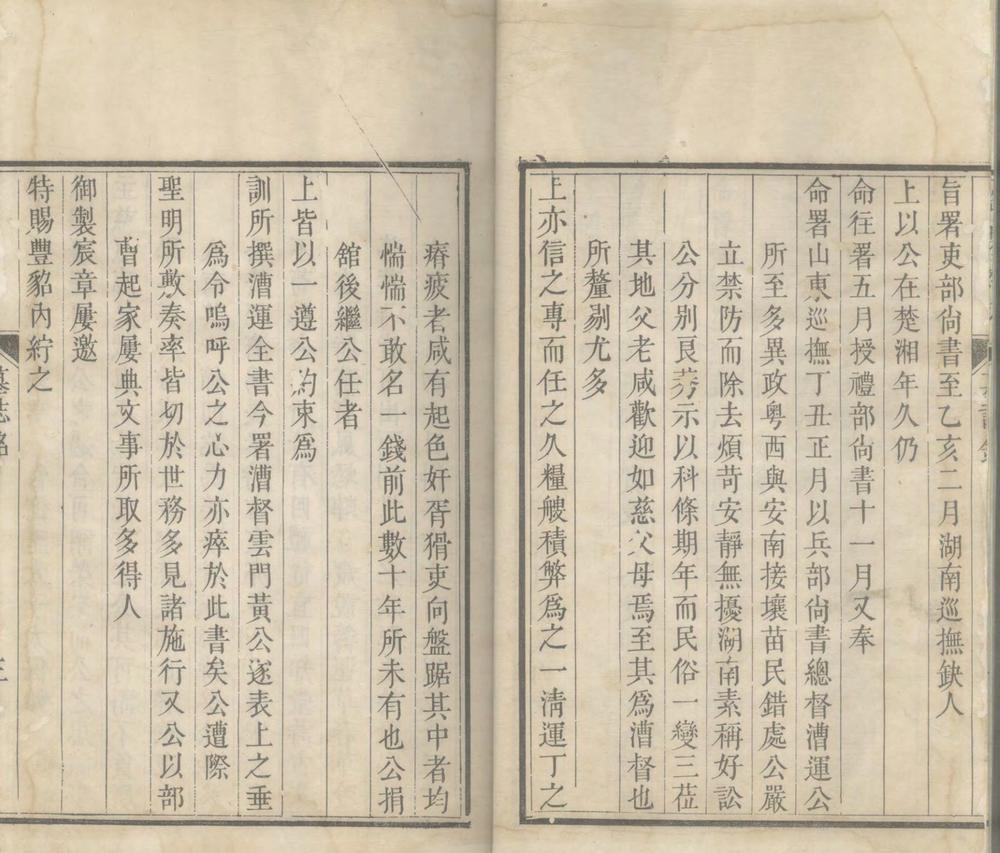 旨署吏部尙書至乙亥二月湖南巡撫缺人
上以公在楚湘年久仍
命往署五月授禮部尙書十一月又奉
命署山東巡撫丁丑正月以兵部尙書總督漕運公
所至多異政粤西與安南接壤苗民錯處公嚴
立禁防而除去煩苛安靜無擾湖南素稱好訟
公分別良莠示以科條期年而民俗一變三莅
其地父老咸歡迎如慈父母焉至其爲漕督也
所釐剔尤多
上亦信之專而任之久糧艘積弊爲之一淸運丁之
瘠疲者咸有起色奸胥猾吏向盤踞其中者均
惴惴不敢名一錢前此數十年所未有也公捐
舘後繼公任者
上皆以一遵公約束爲
訓所撰漕運全書今署漕督雲門黃公遂表上之垂
爲令嗚呼公之心力亦瘁於此書矣公遭際
聖明所敷奏率皆切於世務多見諸施行又公以部
曹起家屢典文事所取多得人
御製宸章屢邀
特賜豐貂內紵之
墓志銘